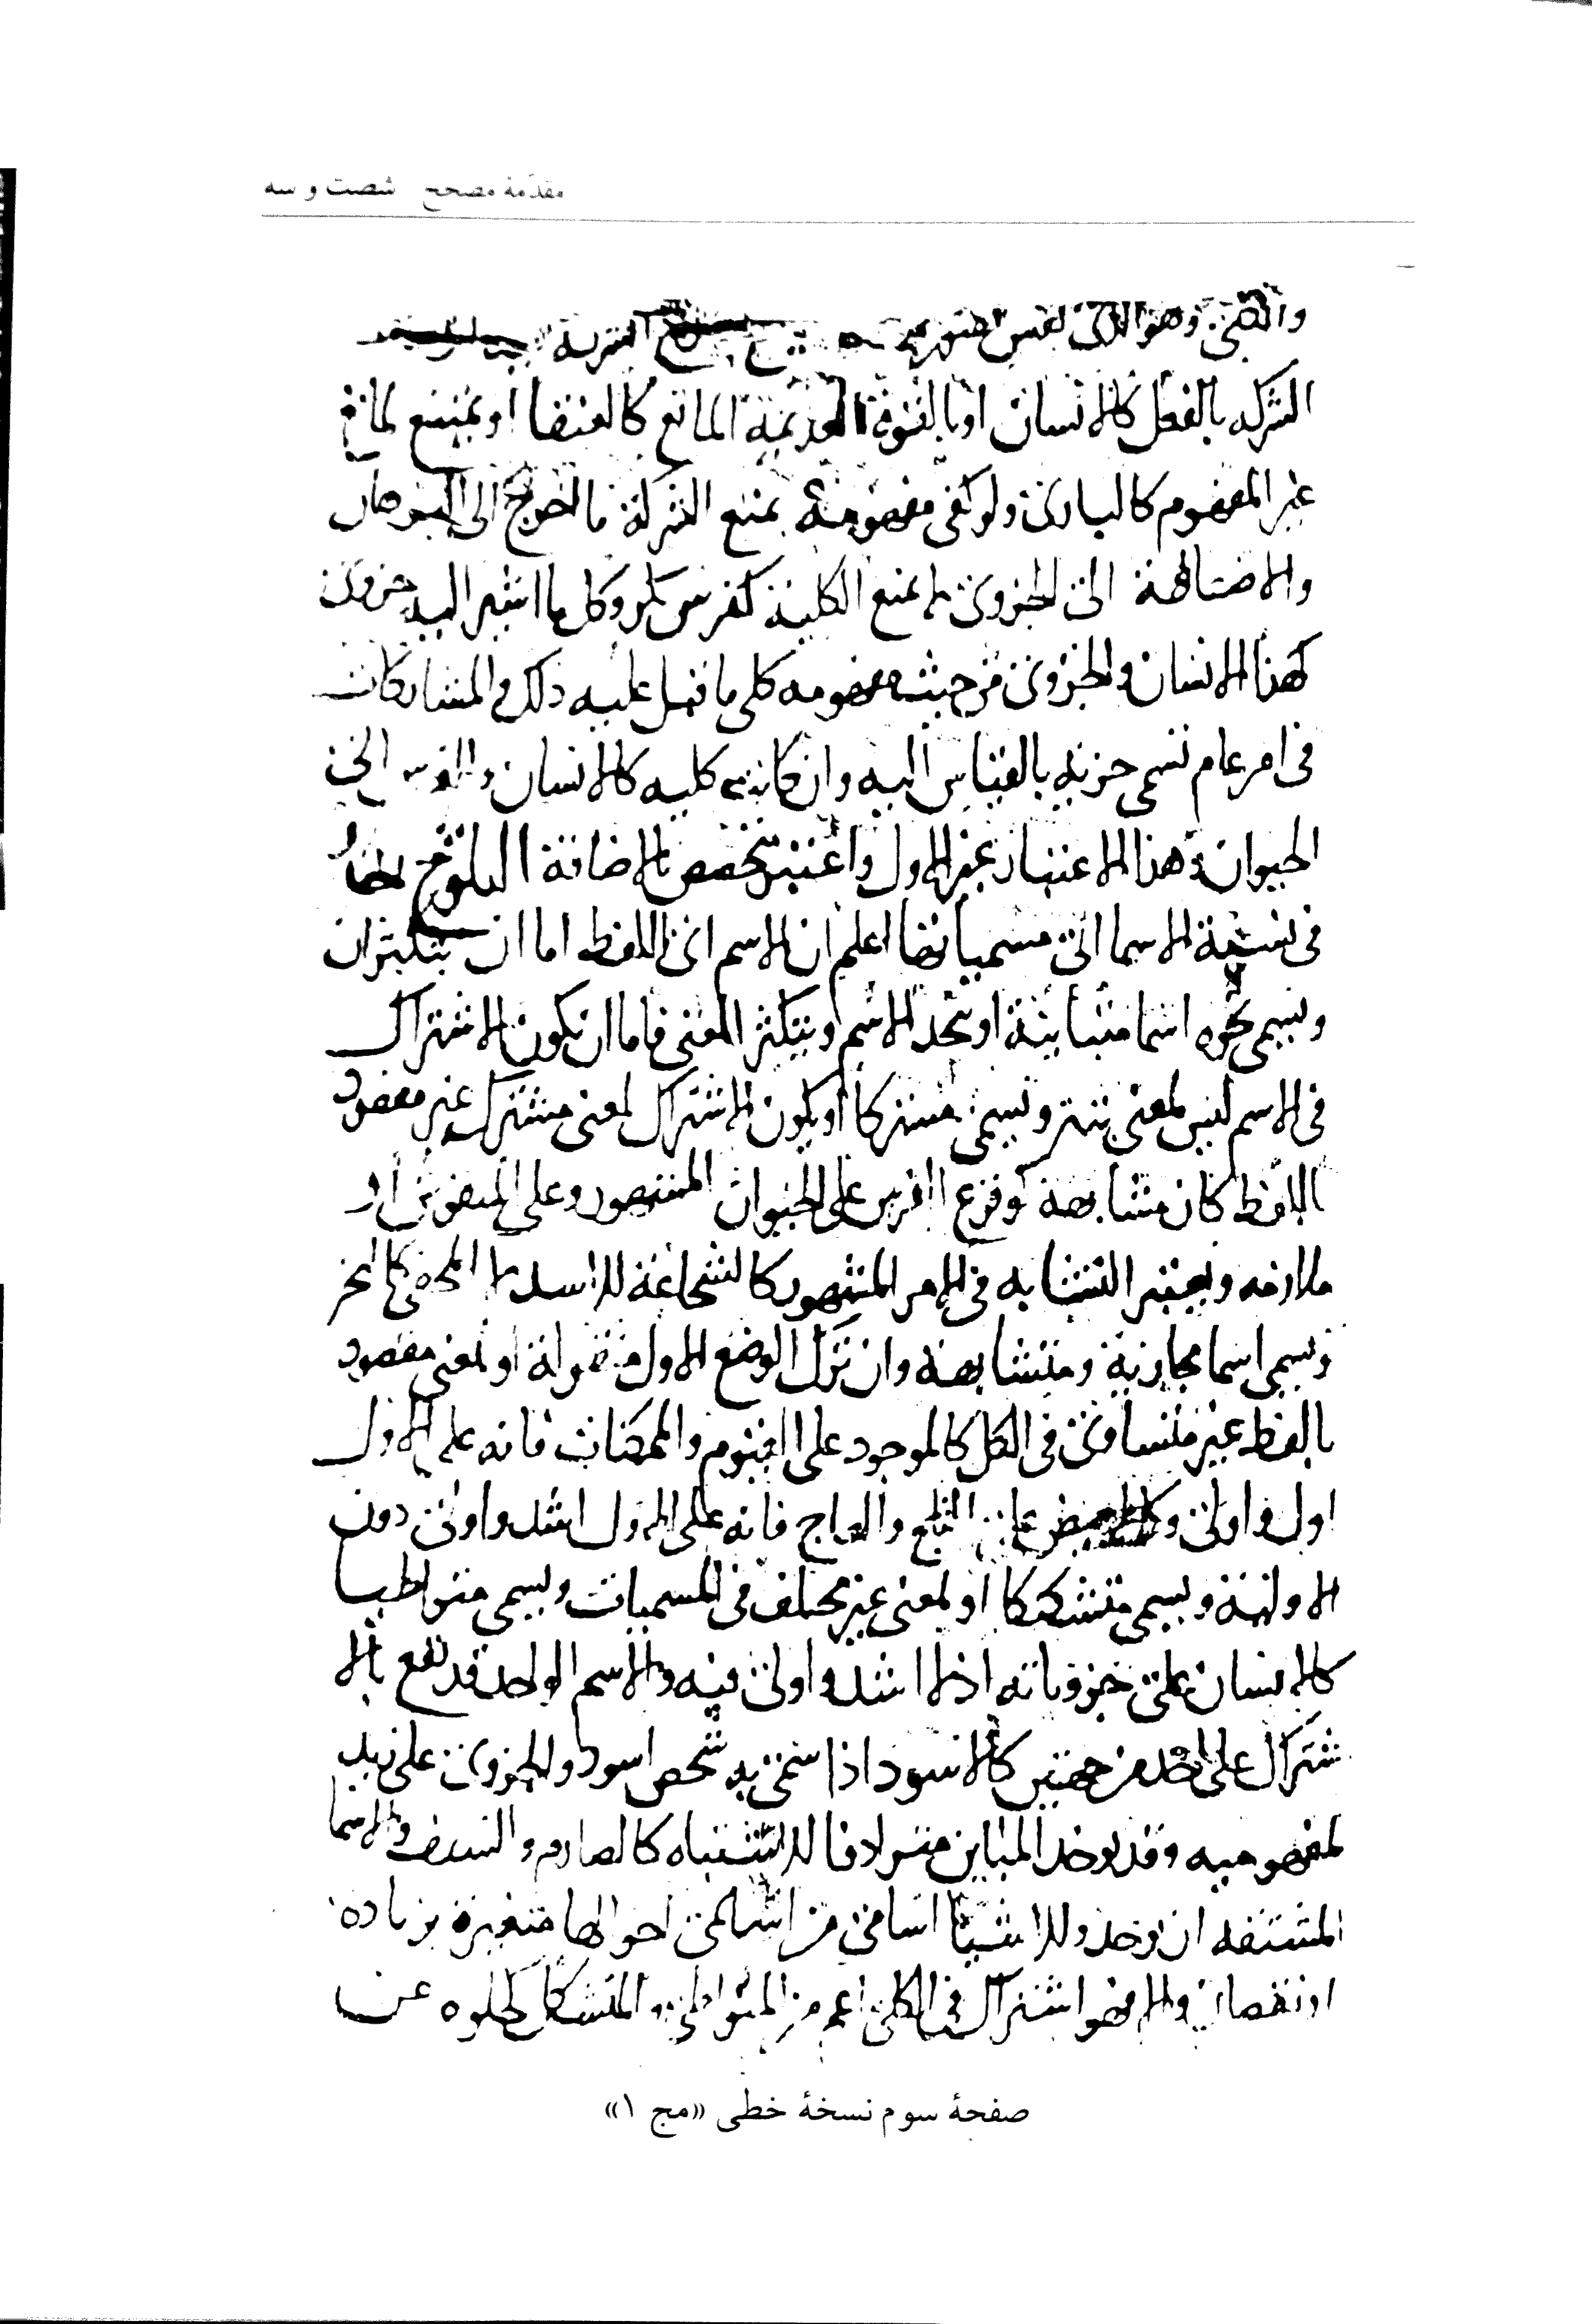 مقدّمهٔ مصحح شصت و سه
والكلى وهو الذى نفس تصور
الشركه بالفعل كالانسان او بالقوة العديمة المانع كالعنقا او يمتنع لمانع
غير المفهوم كالبارى ولو كفى مفهومه بمنع الشركة ما احوج الى البرهان
والاضافة الى الجزوى لا يمنع الكلية كفرس بكر وكل ما اشير اليه جزوى
كهذا الانسان والجزوى من حيث مفهومه كلى ما نقل عليه ذلك والمشاركات
فى امر عام تسمى جزيه بالقياس اليه وان كانت كليه كالانسان والفرس الى
الحيوان وهذا الاعتبار غير الاول واعتبر تخصص بالاضافة التلويح
فى نسبة الاسما الى مسمياتها اعلم ان الاسم اى اللفظ اما ان يتكثران
ويسمى نحوه اسما متباينة او يتحد الاسم ويتكثر المعنى فاما ان يكون الاشتراك
فى الاسم ليس لمعنى ويسمى مشتركا او يكون الاشتراك لمعنى مشترك غير مقصود
باللفظ كان مشابهة كوقوع الفرس على الحيوان المتصور وعلى المنقوش او
ملازمه ويعتبر التشابه فى الامر المشهور كالشجاعة للاسد لا الخفى كالبخر
ويسمى اسما مجازية ومتشابهة وان ترك الوضع الاول منقولة او لمعنى مقصود
باللفظ غير متساوى فى الكل كالموجود على القيوم والممكنات فانه على الاول
اول واولى وكالابيض على الثلج والعاج فانه على الاول اشد واولى دون
الاولية ويسمى متشككا او لمعنى غير مختلف فى المسميات ويسمى متواطيا
كالانسان على جزوياته اذ لا اشد واولى فيه والاسم الواحد قد يقع بالا
شتراك على احد من جهتين كالاسود اذا سمى به شخص اسود والجزوى على زيد
لمفهوميه وقد يوخذ المباين مترادفا للاشتباه كالصارم والسيف والاسما
المشتقه ان يوخذ للاشيا اسامى من اسامى احوالها متغيرة بزيادة
او نقصان والا فهو اشتراك فى الكلى اعم من المتواطى والمتشكك لخلوه عن
صفحهٔ سوم نسخهٔ خطی «مج ۱»